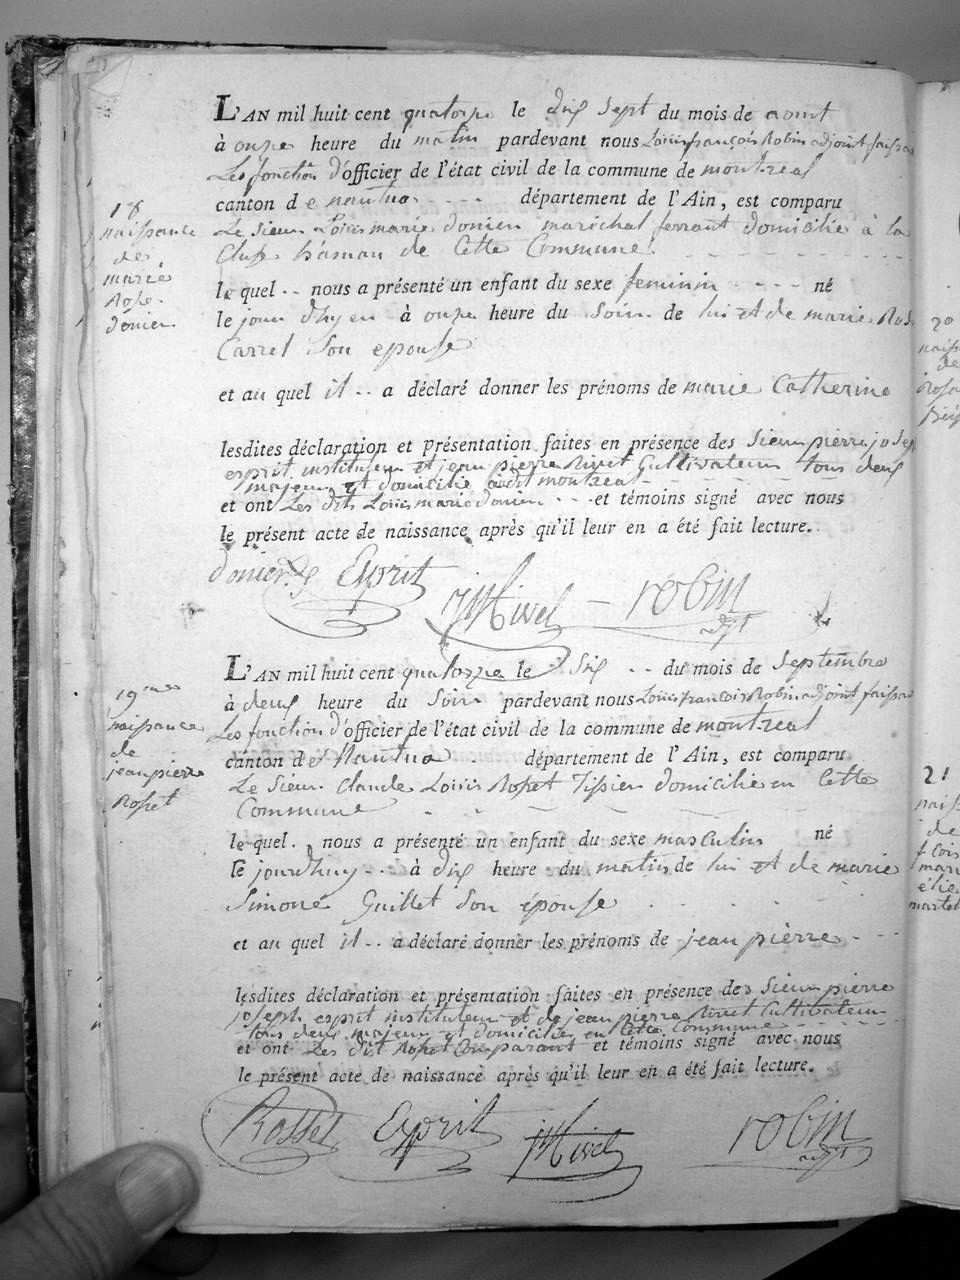 L'AN mil huit cent quatorze le dix sept du mois de aoust
à onze heure du matin pardevant nous Louis françois Robin adjoint faisant
Les fonction d'officier de l'état civil de la commune de montreal
canton de nantua département de l'Ain, est comparu
18
naissance
de
marie
Rose
donier
Le sieur Louis marie donier marichal ferrant domicilié à la
Cluse hamau de Cette Commune
le quel nous a présenté un enfant du sexe feminin né
le jour dhyer à onze heure du Soir de lui et de marie Rose
Carrel Son epouse
et au quel il a déclaré donner les prénoms de marie Catherine
lesdites déclaration et présentation faites en présence des Sieur pierre joseph
esprit instituteur et jean pierre Rivet Cultivateur tous deux
majeur et domicilié audit montreal
et ont Les dits Louis marie donier et témoins signé avec nous
le présent acte de naissance après qu'il leur en a été fait lecture.
donier Esprit JPRivet robin
adjt
L'AN mil huit cent quatorze le Six du mois de Septembre
à deux heure du Soir pardevant nous Louis francois Robin adjoint faisant
Les fonction d'officier de l'état civil de la commune de montreal
canton de Nantua département de l'Ain, est comparu
19
naissance
de
jean pierre
Rosset
Le Sieur Claude Louis Rosset Tissier domicilié en Cette
Commune
le quel nous a présenté un enfant du sexe masculin né
le jourdhuy à dix heure du matin de lui et de marie
Simone Guillet Son épouse
et au quel il a déclaré donner les prénoms de jean pierre
lesdites déclaration et présentation faites en présence des Sieur pierre
joseph esprit instituteur et de jean pierre Rivet Cultivateur
tous deux majeur et domicilié en Cette Commune
et ont Les dit Rosset Comparant et témoins signé avec nous
le présent acte de naissance après qu'il leur en a été fait lecture.
Rosset Esprit JPRivet robin
adjt
20
21